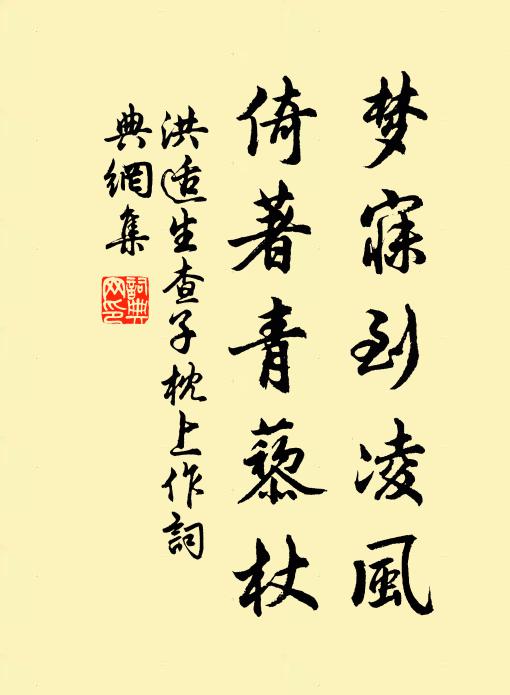 梦寐到凌風
倚著青藜杖
洪适生查子枕上作詞
典網集
詞典
网印